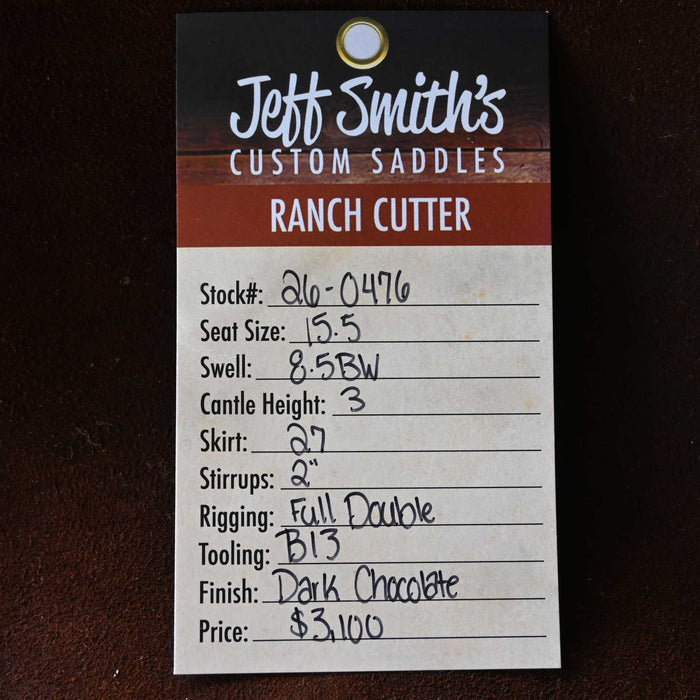 Jeff Smith's
CUSTOM SADDLES
RANCH CUTTER
Stock#: 26-0476
Seat Size: 15.5
Swell: 8.5BW
Cantle Height: 3
Skirt: 27
Stirrups: 2"
Rigging: Full Double
Tooling: B13
Finish: Dark Chocolate
Price: $3,100